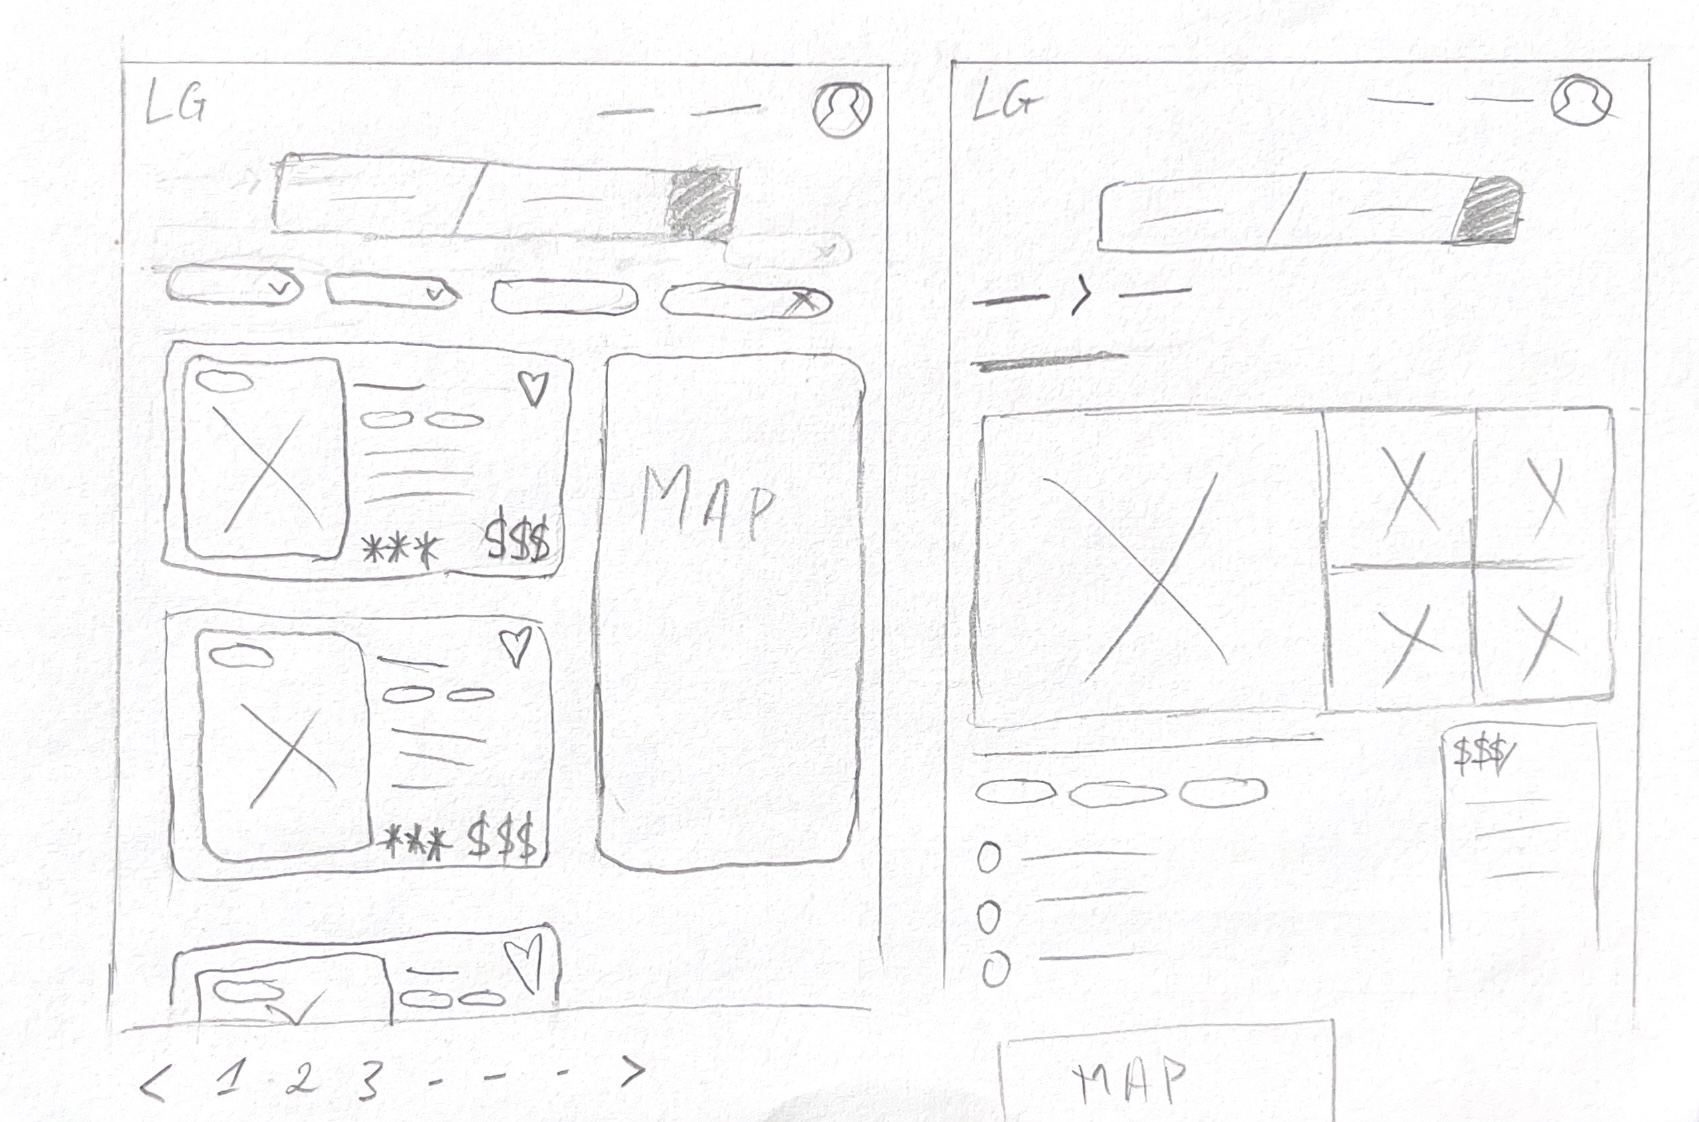 LG
*** $$$
*** $$$
MAP
< 1 2 3 - - - >
LG
$$$
MAP